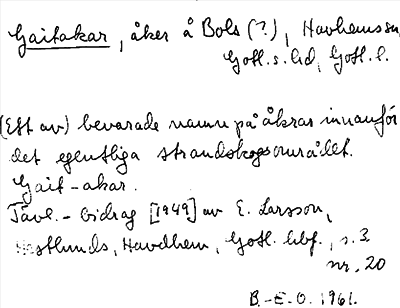 Gaitakar, åker å Bols (?), Havdhems sn,
Gotl. s. hd, Gotl. l.
(Ett av) bevarade namn på åkrar innanför
det egentliga strandskogsområdet.
Gait-akar.
Tävl.-bidrag [1949] av E. Larsson,
Havdhem, Gotl. , s. 3
nr. 20
B.-E.O. 1961.